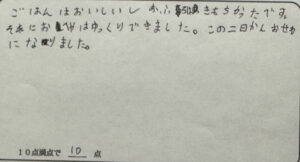 ごはんはおいしいし おふろもきもちかったです。
それにおはゆっくりできました。この二日かんおせわ
になりました。
10点満点で 10 点